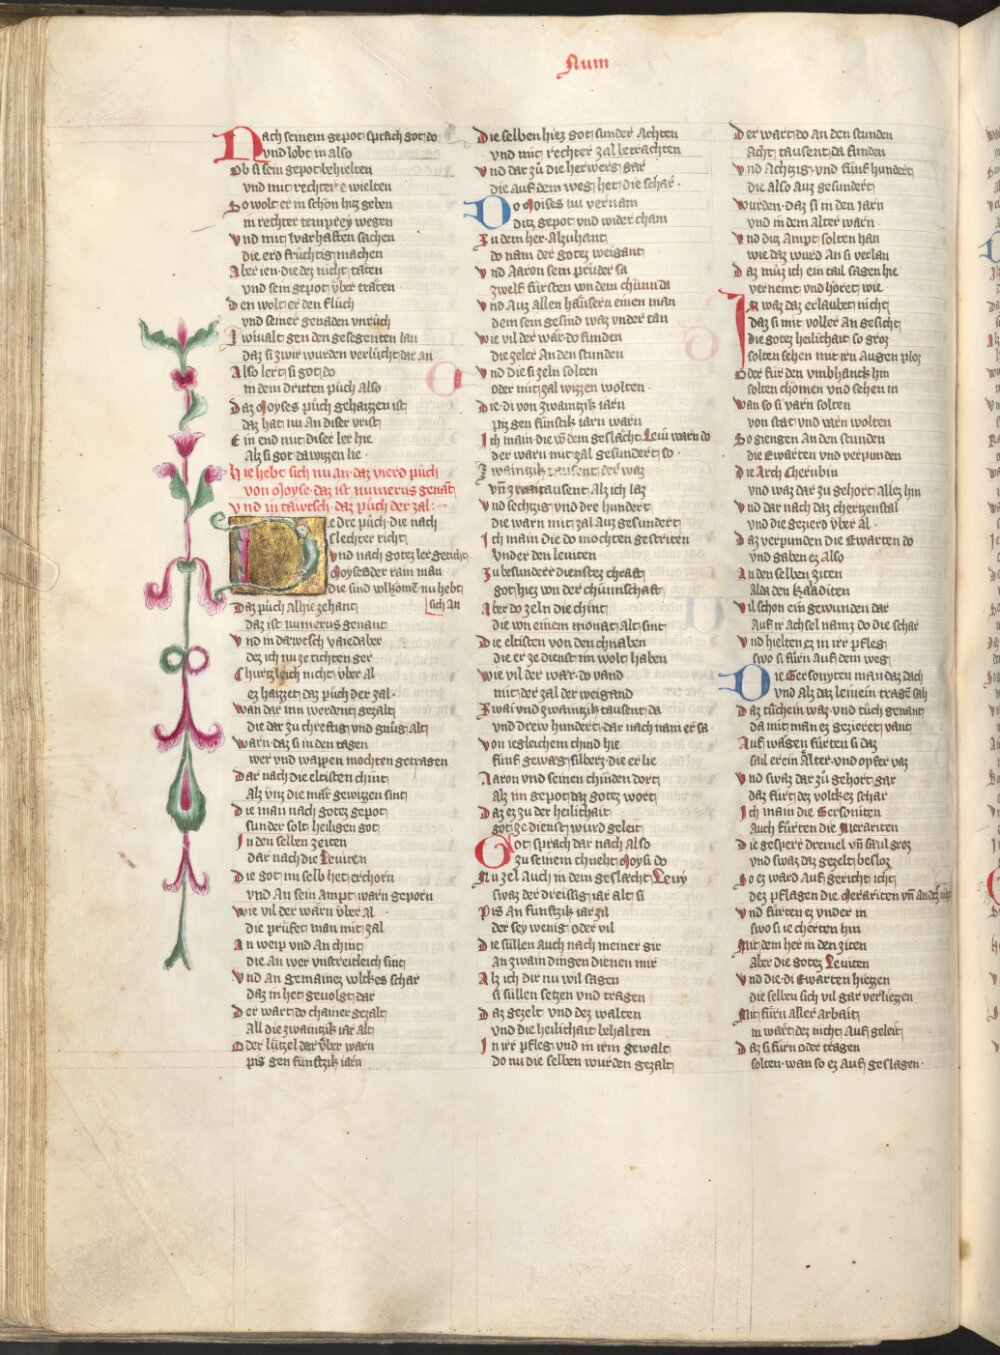 Num
Nach seinem gepot sprach got do
vnd lobt in also
Ob si sein gepot behielten
vnd mit rechter e wielten
So wolt er in schon hitz geben
in rechter temprey wegen
Vnd mit warhaften sachen
die erd fruchtig machen
Aber ien die dez nicht taten
vnd sein gepot vber traten
Den wolt er den fluch
vnd seiner genaden vnruch
Zwivalt gen den gesegenten lan
daz si zwir wurden verflucht dar an
Also lert si got do
in dem dritten puch also
Daz Moyses puch gehaizzen ist
daz hat nu an diser vrist
Ein end mit diser ler hie
Alz si got da wizzen lie
Hie hebt sich nu an daz vierd puch
von Moyse daz ist numerus genant
Vnd in tawtsch daz puch der zal
Dedre puch die nach
slechter richt
Vnd nach gotez ler geticht
Moyses der rain man
die sind volkomen nu hebt
sich an
Daz puch alhie zehant
daz ist numerus genant
Vnd in dawtsch vaiedaber
dez ich nu ze tichten ger
Churtzlich nicht vber al
ez haizzet daz puch der zal
Wan dar inn werdent gezalt
die dar zu chreftig vnd gnug alt
Warn daz si in den tagen
wer vnd wappen mochten getragen
Dar nach die eltisten chint
Alz vnz die mar gewizzen sint
Die man nach gotez gepot
sunder solt heiligen got
In den selben zeiten
dar nach die Leuiten
Die got im selb het erchorn
vnd an sein ampt warn geporn
Wie vil der warn vber al
die prufet man mit zal
An weip vnd an chint
die an wer vnstreitleich sint
Vnd an gemainez volkes schar
daz in het geuolgt dar
Der wart do chainer gezalt
All die zwaintzik iar alt
Oder lutzel dar vber warn
piz gen funftzik iarn
Die selben hiez got sunder achten
vnd mit rechter zal betrachten
Vnd dar zu die herwerg gar
die auf dem weg het die schar
Do Moises nu vernam
ditz gepot vnd wider cham
Zu dem her alzuhant
do nam der gotez weigant
Vnd Aaron sein pruder sa
zwelf fursten von dem chunn da
Vnd auz allen hausern einen man
dem sein gesind waz vnder tan
Wie vil der war do funden
die zeler an den stunden
Vnd die si zeln solten
oder mit zal wizzen wolten
Die di von zwaintzik iarn
piz gen funftzik iarn warn
Ich main die von dem geslacht Leui warn do
der warn mit zal gesundert so
Zwaintzik tausent der waz
vnd zway tausent alz ich laz
Vnd sechtzig vnd dre hundert
die warn mit zal auz gesundert
Ich main die do mochten gestriten
vnder den leuiten
Zu besunder dienstez chraft
got hiez von der chunnschaft
Aber do zeln die chint
die von einem monat alt sint
Die eltisten von den chnaben
die er ze dienst im wolt haben
Wie vil der war do vand
mit der zal der weigand
Zwai vnd zwaintzik tausent da
vnd drew hundert dar nach nam er sa
Von iegleichem chind hie
funf gewag silberz die er lie
Aaron vnd seinen chinden dort
alz im gepot daz gotez wort
Daz ez zu der heilichait
got ze dienst wurd geleit
Got sprach dar nach also
zu seinem chneht Moysi do
Nu zel auch in dem geslecht Leuy
swaz der dreissig iar alt si
Piz an funftzik iar zil
der sey wenig oder vil
Die sullen auch nach meiner gir
an zwain dingen dienen mir
Alz ich dir nu wil sagen
si sullen setzen vnd tragen
Daz gezelt vnd dez walten
vnd die heilichait behalten
In irr pfleg vnd in irm gewalt
do nu die selben wurden gezalt
Der wart do an den stunden
Acht tausent da funden
Vnd achtzig vnd funf hundert
die also auz gesundert
Wurden daz si in den iarn
vnd in dem alter warn
Vnd ditz ampt solten han
wie daz wurd an si verlan
Daz muz ich ein tail sagen hie
vernemt vnd horet wie
In waz daz erlaubet nicht
daz si mit voller an gesicht
Die gotez heilichait so groz
solten sehen mit irn augen ploz
Oder fur den vmbhanck hin
solten chomen vnd sehen in
Wan so si varn solten
von stat vnd varn wolten
So giengen an den stunden
die Ewarten vnd verpunden
Die Arch Cherubin
vnd waz dar zu gehort allez hin
Vnd dar nach daz cherzenstal
vnd die gezierd vber al
Daz verpunden die Ewarten do
vnd gaben ez also
An den selben ziten
alda den Kaaditen
Vil schon ein gewunden dar
auf ir achsel namz do die schar
Vnd hielten ez in irr pfleg
swo si furn auf dem weg
Die Gersonyten man daz dach
vnd alz daz leinein tragen sah
Daz tuchein waz vnd tuch genant
da mit man ez gezieret vant
Auf wagen furten si daz
sail erein alter vnd opfer vaz
Vnd swaz dar zu gehort gar
daz furt dez volkez schar
Ich main die Gersoniten
auch furten die Merariten
Die gesperr dremel vnd saul groz
vnd swaz daz gezelt besloz
So ez ward auf gericht icht
dez pflagen die Merariten vnd anders nicht
Vnd furten ez vnder in
swo si ie cherten hin
Mit dem her in den ziten
aber die gotez Leuiten
Vnd die di Ewarten hiezzen
die selben sich vil gar verliezzen
Mit furn aller arbait
in wart dez nicht auf geleit
Daz si furn oder tragen
solten wan so ez auf geslagen